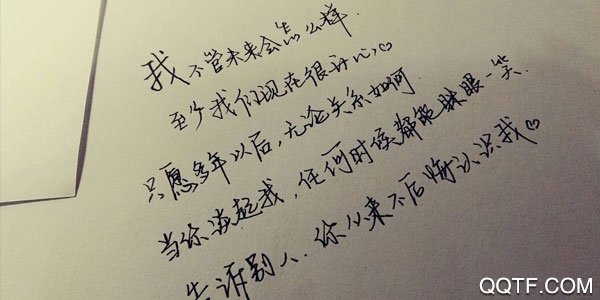 我不管未来会怎么样
至少我们现在很开心♡
只愿多年以后,无论关系如何.
当你谈起我,任何时候都能眯眼一笑.
告诉别人.你从来不后悔认识我♡
QQTF.COM